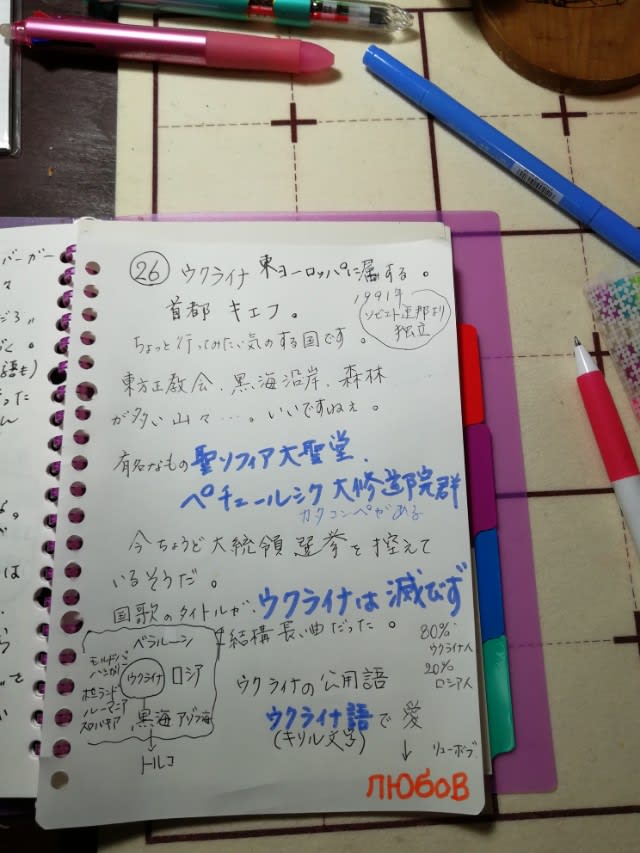 バーガー
語も)
㉖ ウクライナ 東ヨーロッパに属する。
首都 キエフ。
1991年
ソビエト連邦より
独立
ちょっと行ってみたい気のする国です。
東方正教会、黒海沿岸、森林
が多い山々…。いいですねぇ。
有名なもの 聖ソフィア大聖堂、
ペチェールシク大修道院群
カタコンベがある
今ちょうど大統領選挙を控えて
いるそうだ。
国歌のタイトルが、ウクライナは滅びず
結構長い曲だった。
80%
ウクライナ人
20%
ロシア人
ベラルーシ
モルドバ
ハンガリー
ポーランド
ルーマニア
スロバキア
ウクライナ
ロシア
黒海 アゾフ海
トルコ
ウクライナの公用語
ウクライナ語で 愛
(キリル文字)
↓ リューボブ
ЛЮбОВ